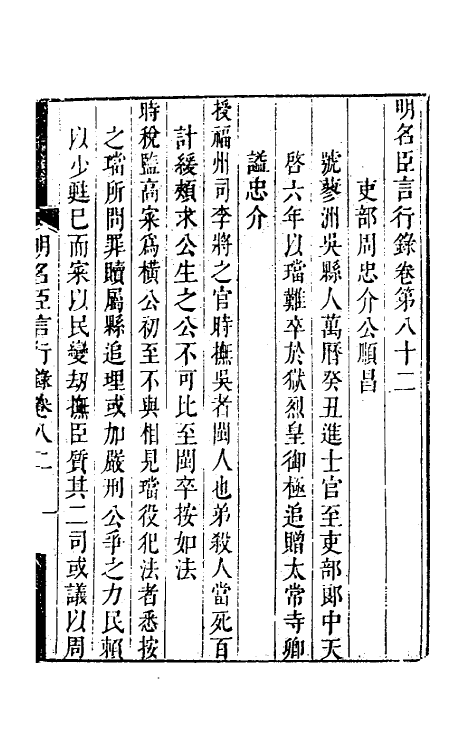 明名臣言行錄卷第八十二
吏部周忠介公順昌
號蓼洲吳縣人萬曆癸丑進士官至吏部郞中天
啓六年以璫難卒於獄烈皇御極追贈太常寺卿
諡忠介
授福州司李將之官時撫吳者閩人也弟殺人當死百
計緩頰求公生之公不可比至閩卒按如法
時稅監高寀爲橫公初至不與相見璫役犯法者悉按
之璫所問罪贖屬縣追理或加嚴刑公爭之力民賴
以少甦已而寀以民變劫撫臣質其二司或議以周
明名臣言行錄卷八二 一